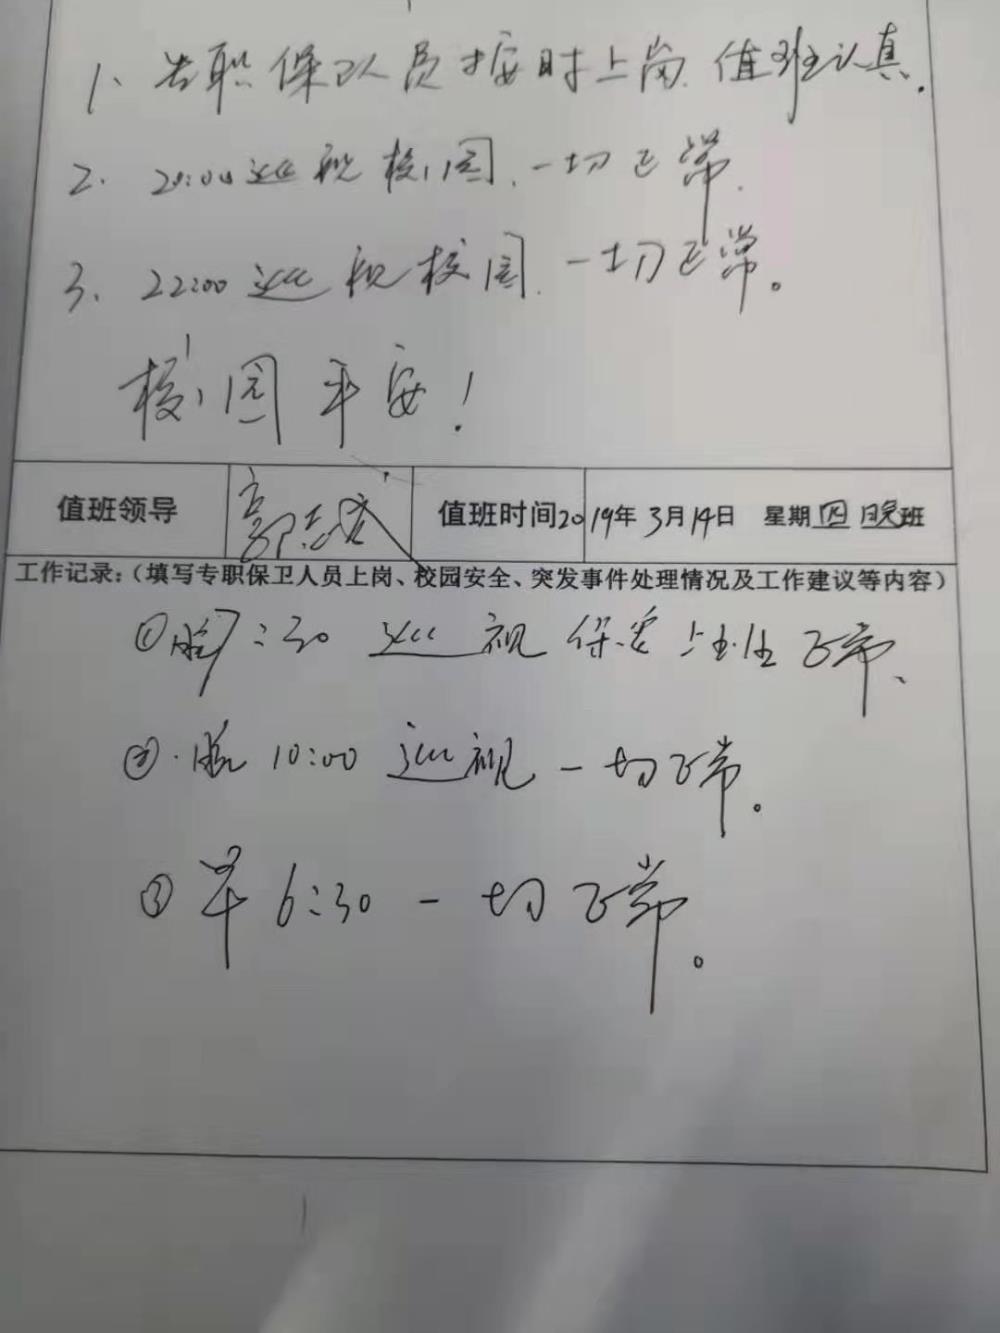 1、专职保卫人员按时上岗.值班认真.
2. 20:00巡视校园.一切正常.
3、22:00巡视校园.一切正常。
校园平安!
值班领导 郭 值班时间2019年3月14日 星期四晚班
工作记录:(填写专职保卫人员上岗、校园安全、突发事件处理情况及工作建议等内容)
①晚7:30巡视保安上班正常、
②.晚10:00巡视一切正常。
③早6:30一切正常。